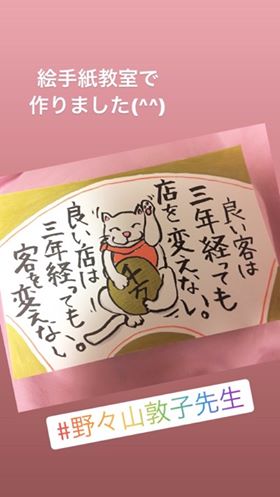 絵手紙教室で
作りました(^^)
良い客は
三年経っても
店を変えない。
良い店は
三年経っても
客を変えない。
千万
#野々山敦子先生